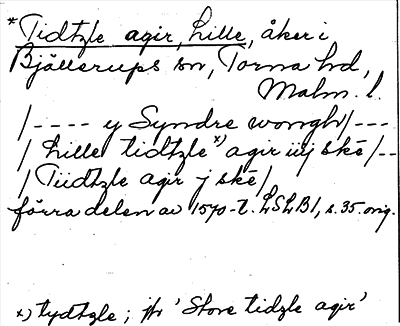 *Tidtzle agir, Lille, åker i
Bjällerups sn, Torna hd,
Malm. l.
/---- y Syndre wongh/---
/ Lille tidtzle *) agir iiij skē/--
/ Tiidtzle agir j skē/
förra delen av 1570-t. LSLB1, s. 35. orig.
*) tydtzle; jfr 'Store tidzle agir'